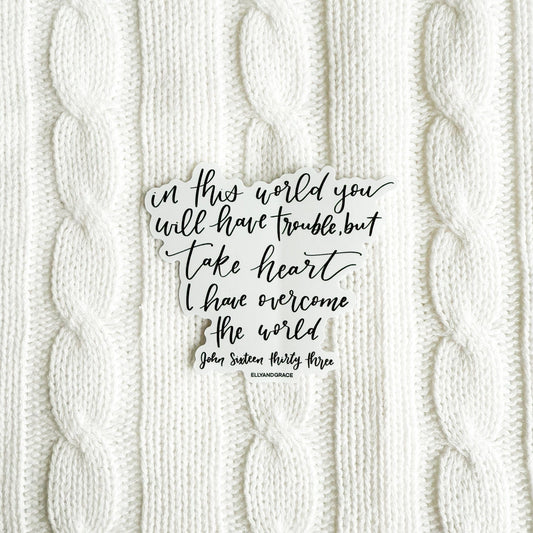 in this world you
will have trouble, but
take heart
I have overcome
the world
John Sixteen thirty three
ELLYANDGRACE